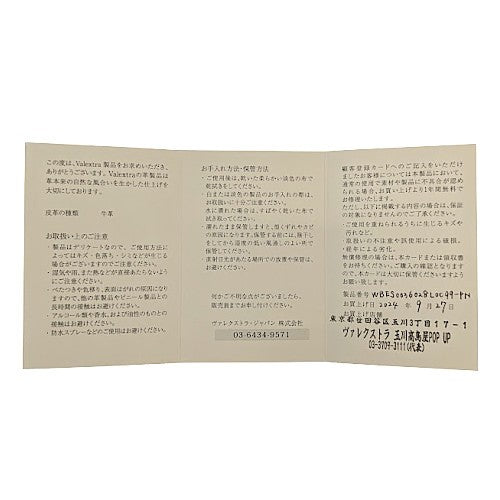 この度は、Valextra 製品をお求めいただき、
ありがとうございます。Valextraの革製品は
革本来の自然な風合いを生かした仕上げを
大切にしております。
皮革の種類 牛革
お取扱い上のご注意
・製品はデリケートなので、ご使用方法に
よってはキズ・色落ち・シミなどが生じる
場合がございますのでご注意ください。
・湿気や雨、また熱などが直接あたらない
ようにご注意ください。
・べたつきや色移り、表面はがれの原因になり
ますので、他の革製品やビニール製品との
長時間の接触はお避けください。
・アルコール類や香水、および油性のものとの
接触はお避けください。
・防水スプレーなどのご使用はお避けください。
お手入れ方法・保管方法
・ご使用後は、乾いた柔らかい淡色の布で
乾拭きをしてください。
・白または淡色の製品のお手入れの際は、
お取扱いに十分ご注意ください。
・水に濡れた場合は、すばやく乾いた布で
拭き取ってください。
・濡れたまま保管しますと、型くずれやカビ
の原因になります。保管する前には、陰干し
をしてから湿度の低い風通しのよい所で
保管してください。
・直射日光があたる場所での放置や保管は、
お避けください。
何かご不明な点がございましたら、
販売員までお申し付けください。
ヴァレクストラ・ジャパン 株式会社
03-6434-9571
顧客登録カードへのご記入をいただけ
ましたお客様については本製品において、
通常の使用で素材や製品に不具合が認め
られる場合、お買上げより1年間無料で
お修理いたします。
ただし、以下に掲載する内容の場合は、保証
の対象になりませんのでご了承ください。
・ご使用を重ねられるうちに生じるキズや
汚れなど。
・取扱いの不注意や誤使用による破損。
・経年による劣化。
無償修理の場合は、本カードまたは領収書
をお持ちください。ご購入の確認となります
ので、本カードは大切に保管していますよう
お願い致します。
製品番号
お買上げ日 2024年 9月27日
お買上げ店舗
東京都世田谷区玉川3丁目17-1
ヴァレクストラ 玉川高島屋POP UP
03-3709-3111(代表)